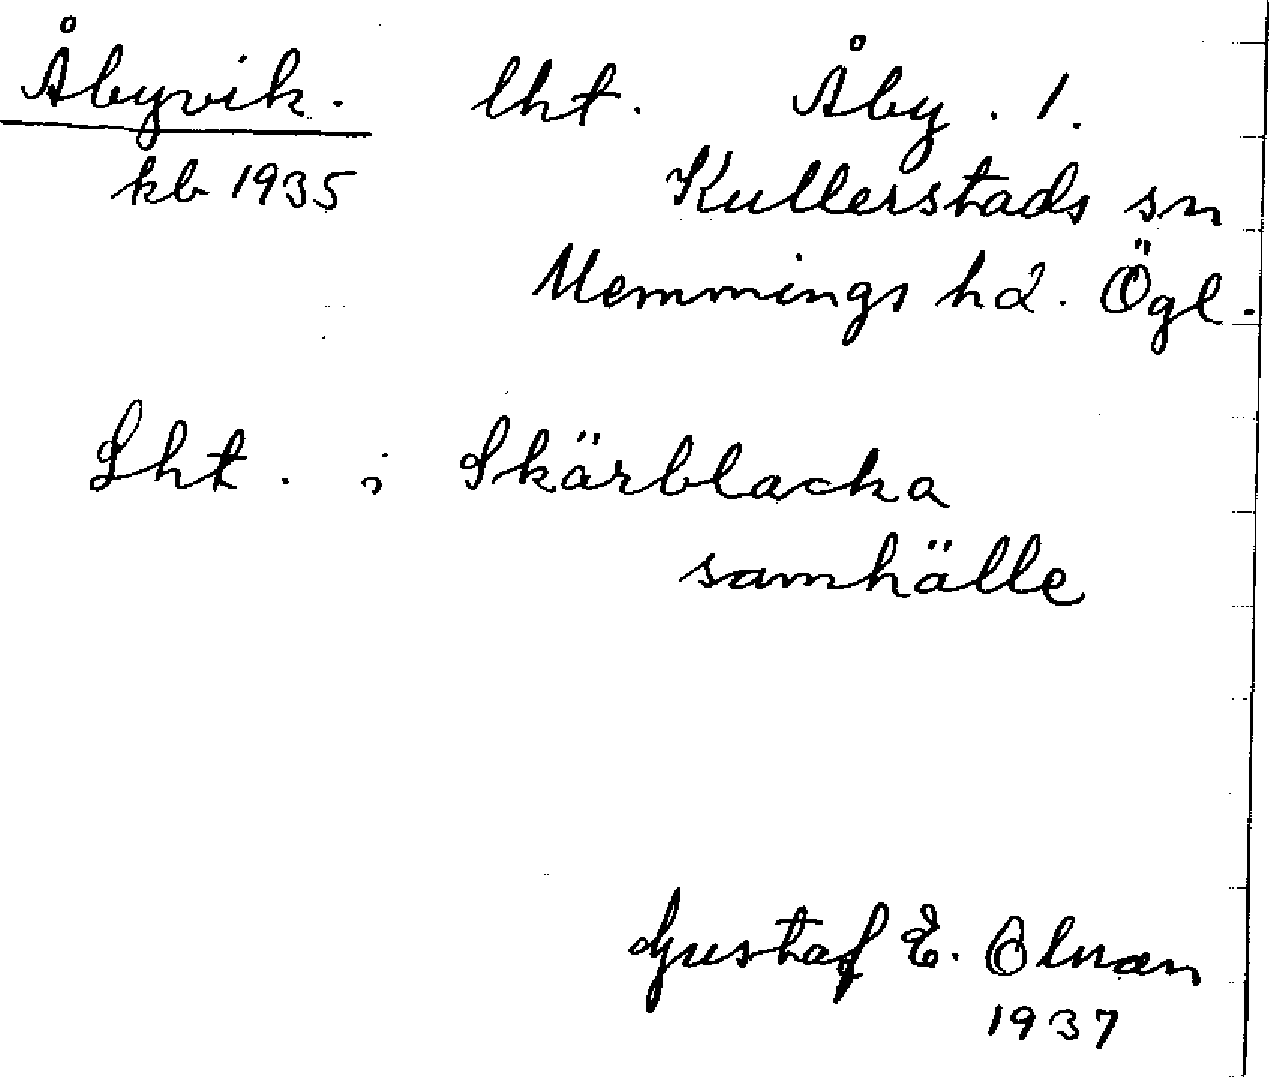 Åbyvik. lht. Åby. 1.
kb 1935 Kullerstads sn
Memmings hd. Ögl.
Lht. i Skärblacka
samhälle
Gustaf E. Olman
1937